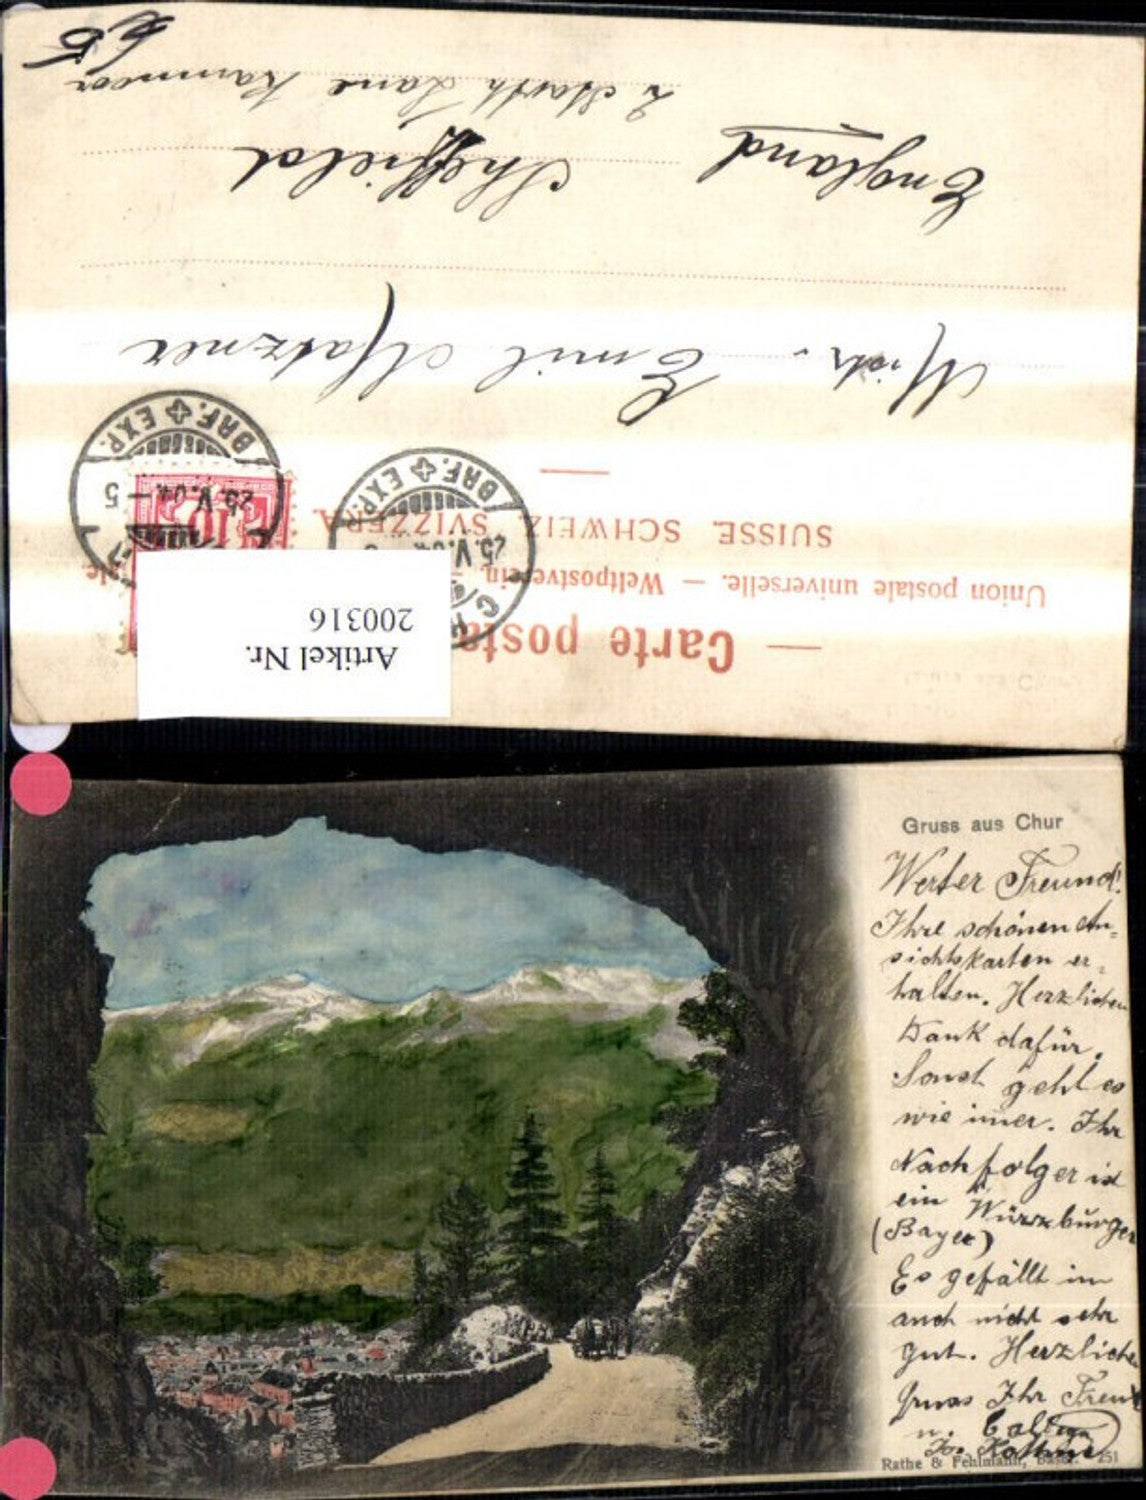 Carte posta
Union postale universelle. — Weltpostverein.
SUISSE. SCHWEIZ. SVIZZERA.
Artikel Nr.
200316
BRF. EXP.
25.V.04
BRF. EXP.
25.V.04.— 5
10
Emil Matzner
England Sheffield
2 Marth Lane Ranmoor
65
Gruss aus Chur
Werter Freund!
Ihre schönen An-
sichtskarten er-
halten. Herzlichen
Dank dafür.
Sonst geht es
wie imer. Ihr
Nachfolger ist
ein Würzburger
(Bayer)
Es gefällt im
auch nicht sehr
gut. Herzliche
Gruss Ihr Freund
u. Collega
Rathe & Fehlmann, Basel. 251